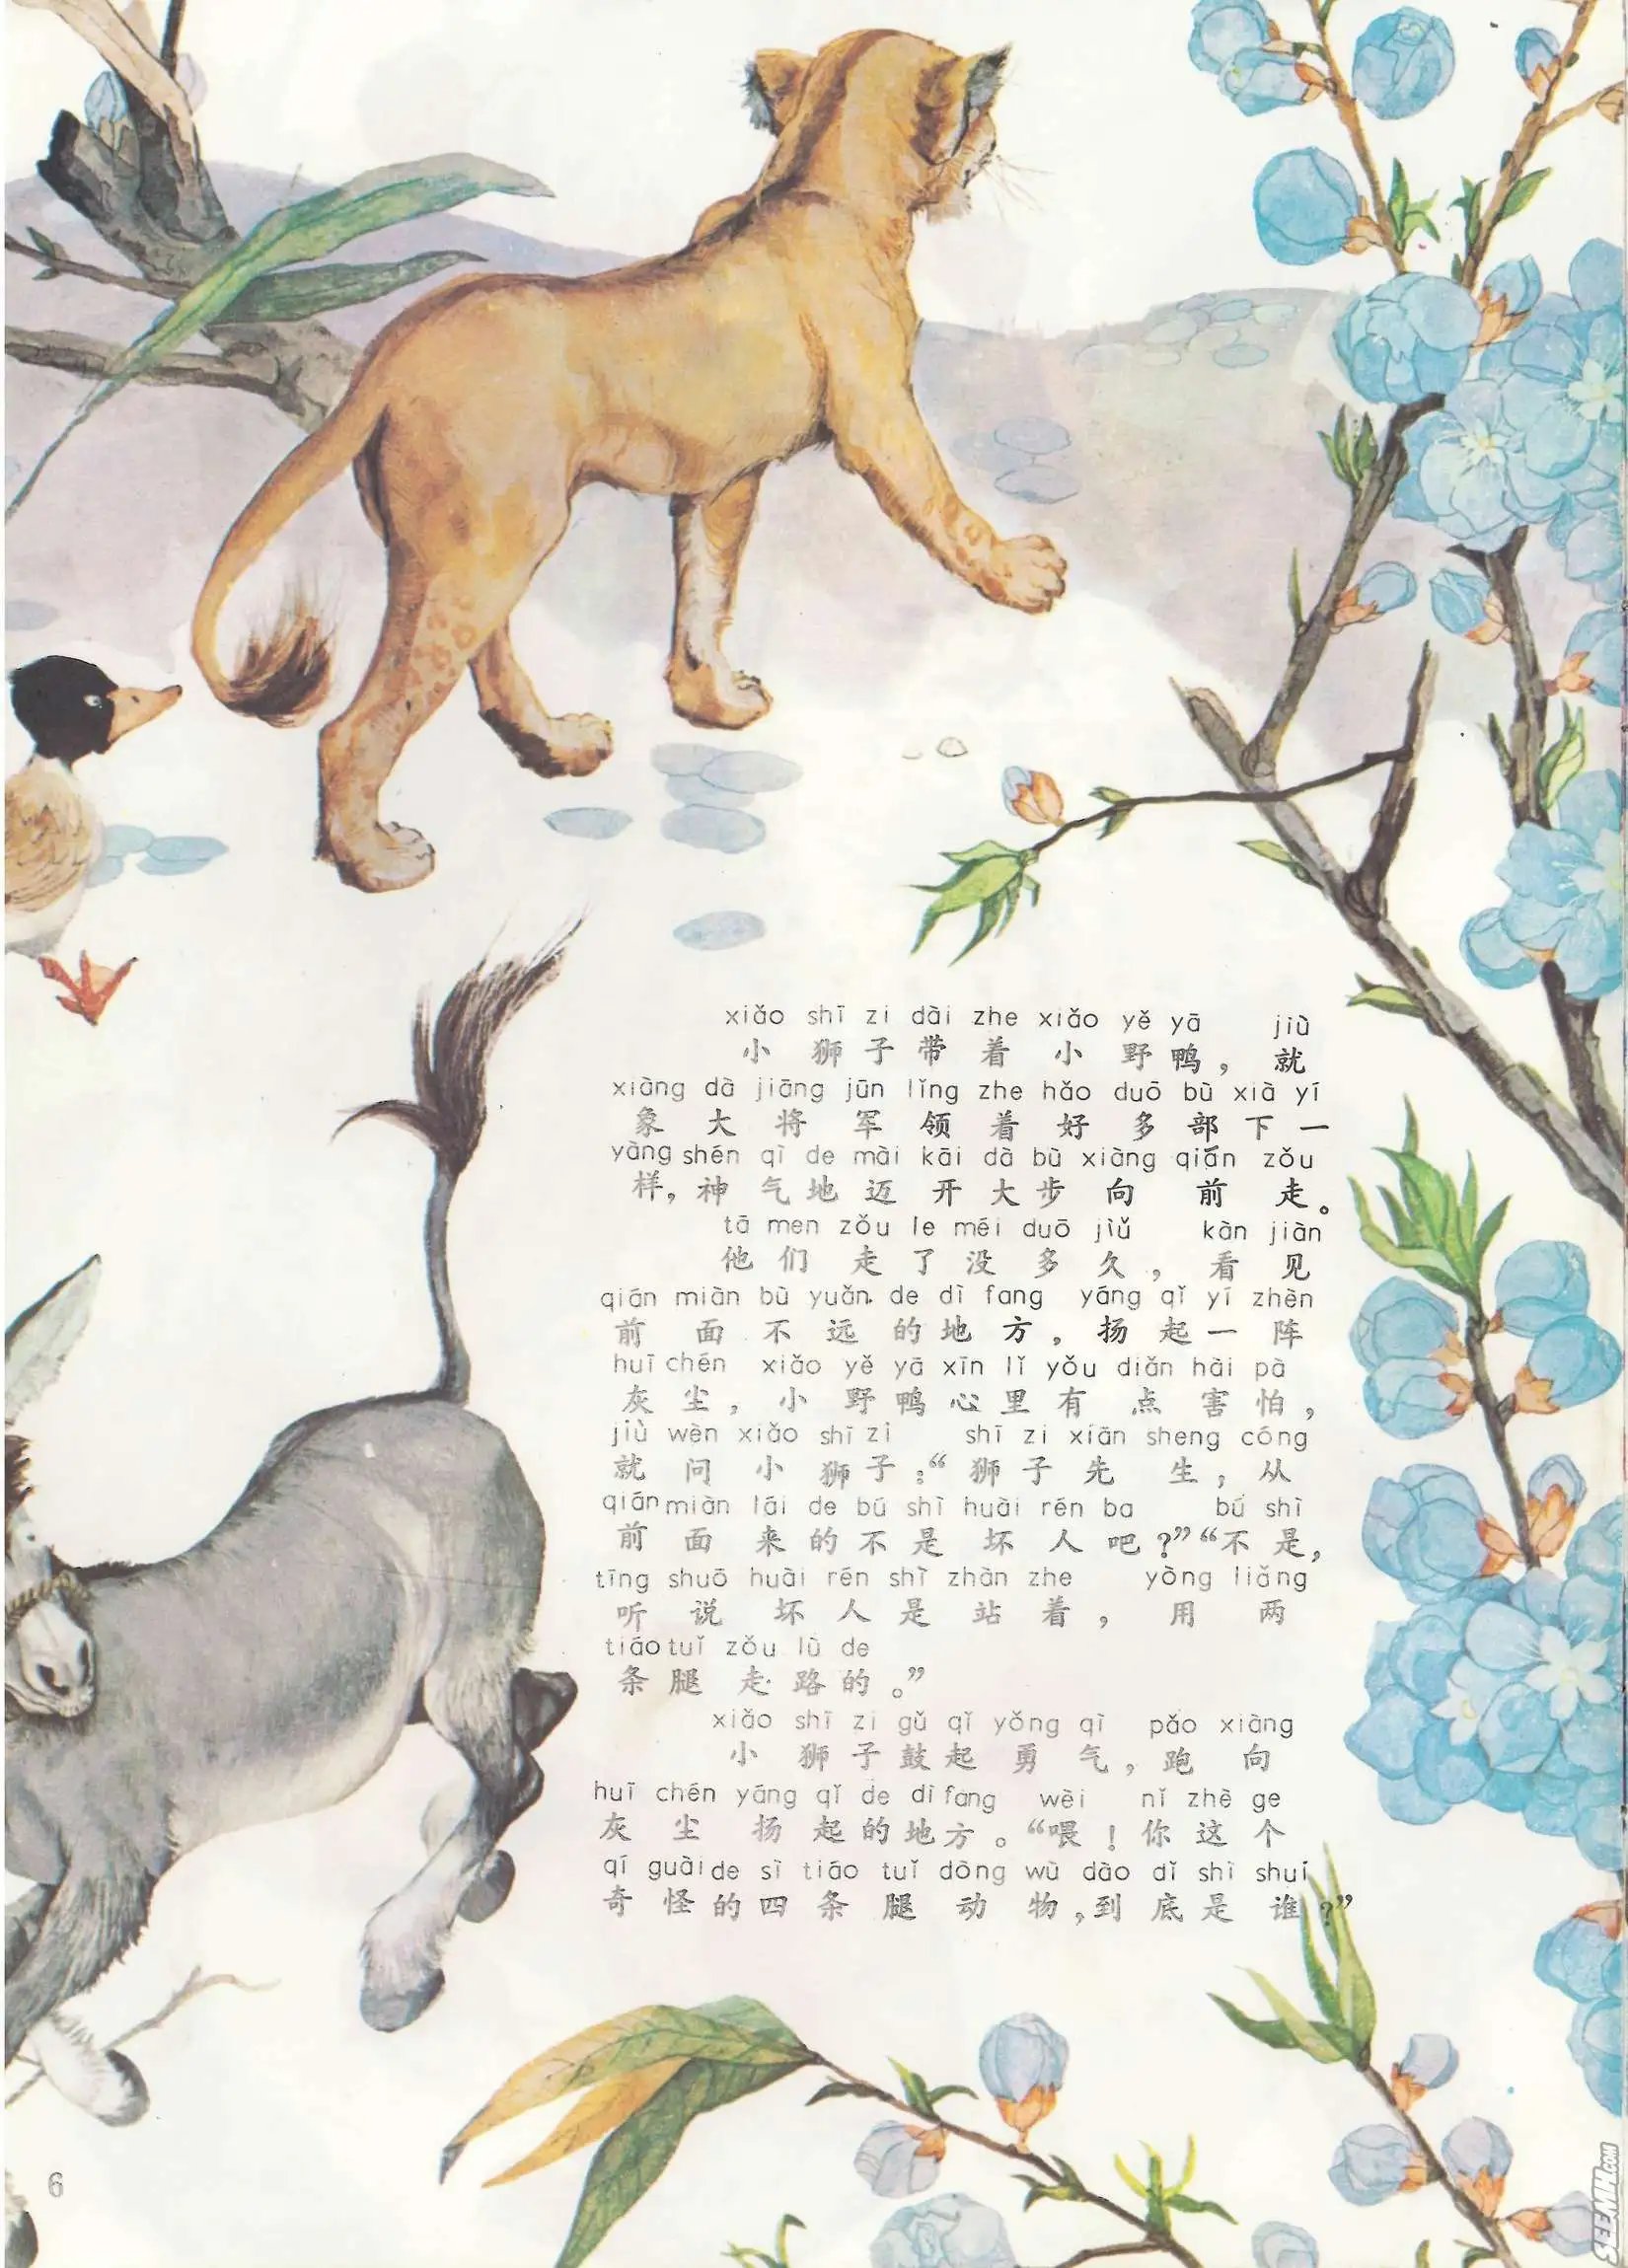 xiǎo shī zi dài zhe xiǎo yě yā jiù
小狮子带着小野鸭，就
xiàng dà jiāng jūn lǐng zhe hǎo duō bù xià yí
象大将军领着好多部下一
yàng shén qì de mài kāi dà bù xiàng qián zǒu
样，神气地迈开大步向前走。
tā men zǒu le méi duō jiǔ kàn jiàn
他们走了没多久，看见
qián miàn bù yuǎn de dì fang yáng qǐ yí zhèn
前面不远的地方，扬起一阵
huī chén xiǎo yě yā xīn lǐ yǒu diǎn hài pà
灰尘，小野鸭心里有点害怕，
jiù wèn xiǎo shī zi shī zi xiān sheng cóng
就问小狮子：“狮子先生，从
qián miàn lái de bú shì huài rén ba bú shì
前面来的不是坏人吧？”“不是，
tīng shuō huài rén shì zhàn zhe yòng liǎng
听说坏人是站着，用两
tiáo tuǐ zǒu lù de
条腿走路的。”
xiǎo shī zi gǔ qǐ yǒng qì pǎo xiàng
小狮子鼓起勇气，跑向
huī chén yáng qǐ de dì fang wèi nǐ zhè ge
灰尘扬起的地方。“喂！你这个
qí guài de sì tiáo tuǐ dòng wù dào dǐ shì shuí
奇怪的四条腿动物，到底是谁？”
6
SEEMH.COM